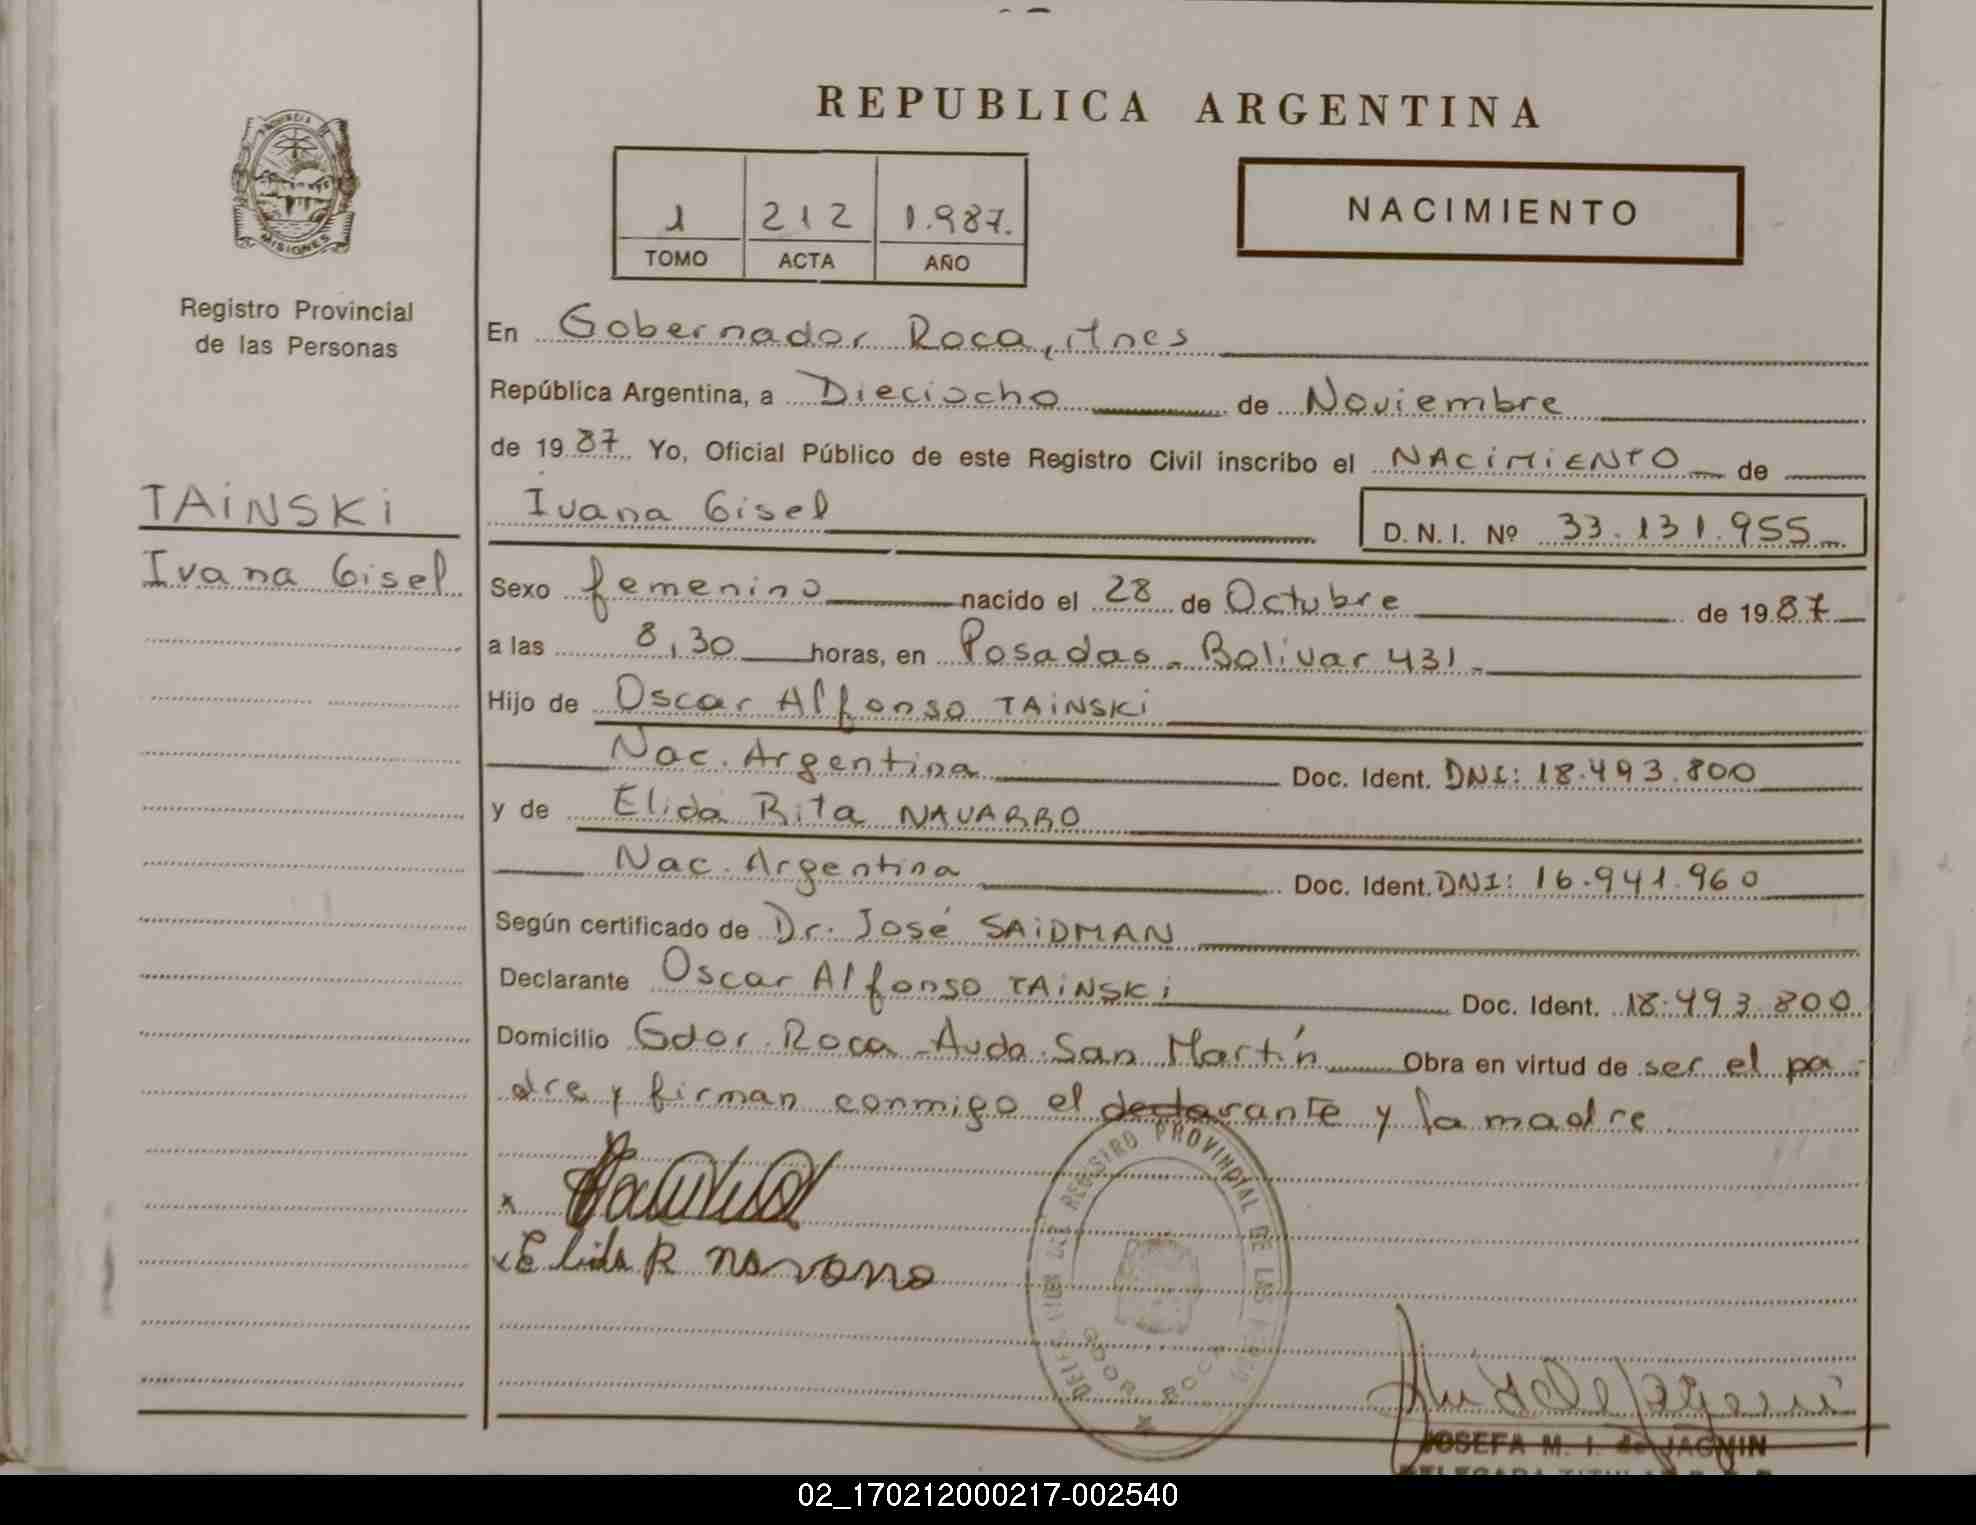 REPUBLICA ARGENTINA
PROVINCIA DE
MISIONES
Registro Provincial
de las Personas
1 212 1.987.
TOMO ACTA AÑO
NACIMIENTO
En Gobernador Roca, Mnes
República Argentina, a Dieciocho de Noviembre
de 1987. Yo, Oficial Público de este Registro Civil inscribo el NACIMIENTO de
TAINSKI
Ivana Gisel
Ivana Gisel D.N.I. Nº 33.131.955
Sexo femenino nacido el 28 de Octubre de 1987
a las 8,30 horas, en Posadas - Bolivar 431 -
Hijo de Oscar Alfonso TAINSKI
Nac. Argentina Doc. Ident. DNI: 18.493.800
y de Elida Rita NAVARRO
Nac. Argentina Doc. Ident. DNI: 16.941.960
Según certificado de Dr. José SAIDMAN
Declarante Oscar Alfonso TAINSKI Doc. Ident. 18.493.800
Domicilio Gdor. Roca - Avda. San Martín Obra en virtud de ser el pa-
dre y firman conmigo el declarante y la madre.
x
x Elida R navarro
REGISTRO PROVINCIAL DE LAS
GDOR ROCA
JOSEFA M. I. de JACNIN
02_170212000217-002540